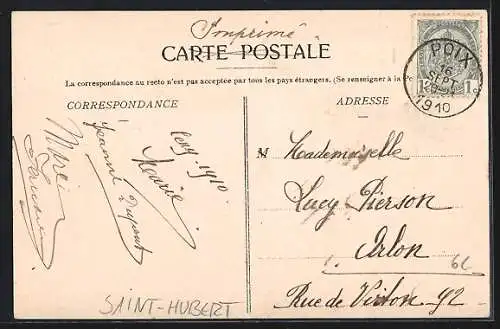 Imprimé
CARTE POSTALE
La correspondance au recto n'est pas acceptée par tous les pays étrangers. (Se renseigner à la Po
CORRESPONDANCE
ADRESSE
POIX
16
SEPT
1910
1 c 1
Marie
Jeanne Dupont
1910
M Mademoiselle
Lucy Pierson
Arlon
Rue de Virton 92
62
SAINT-HUBERT